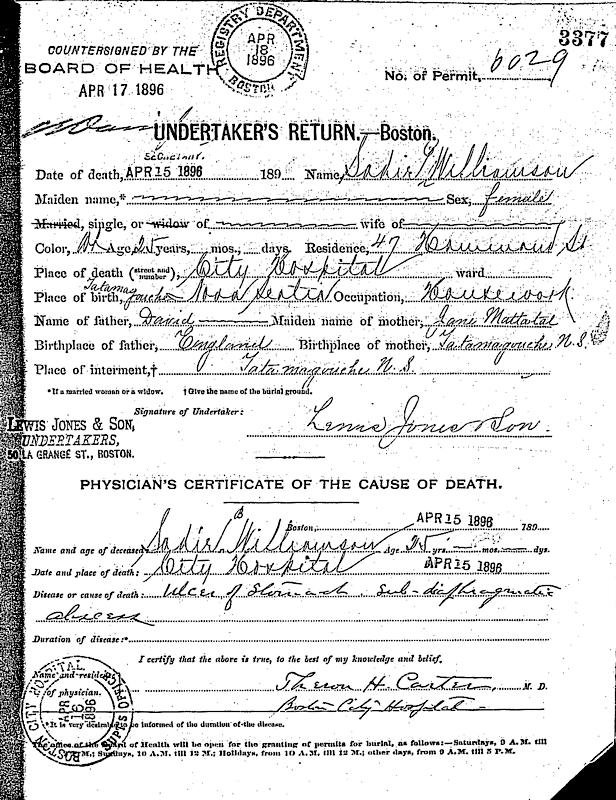 3377
COUNTERSIGNED BY THE
BOARD OF HEALTH
APR 17 1896
REGISTRY DEPARTMENT
APR
18
1896
BOSTON
No. of Permit, 6029
UNDERTAKER'S RETURN.—Boston.
Secretary.
Date of death, APR 15 1896 189 Name, Sadie Williamson
Maiden name,* Sex, female
Married, single, or widow of wife of
Color, Age, 25 years, mos., days. Residence, 47 Hammond St
Place of death (street and number), City Hospital ward
Place of birth, Tatamagouche Nova Scotia Occupation, Housework
Name of father, David Maiden name of mother, Jane Mattatal
Birthplace of father, England Birthplace of mother, Tatamagouche N.S.
Place of interment,† Tatamagouche N.S.
*If a married woman or a widow. †Give the name of the burial ground.
Signature of Undertaker: Lewis Jones & Son.
LEWIS JONES & SON,
UNDERTAKERS,
50 LA GRANGE ST., BOSTON.
PHYSICIAN'S CERTIFICATE OF THE CAUSE OF DEATH.
Boston, APR 15 1896 189
Name and age of deceased: Sadie B Williamson Age 25 yrs. mos. dys.
Date and place of death: City Hospital APR 15 1896
Disease or cause of death: Ulcer of Stomach. Sub-diaphragmatic
abscess
Duration of disease:*
I certify that the above is true, to the best of my knowledge and belief.
Name and residence of physician. Theron H. Carter, M. D.
Boston City Hospital
BOSTON CITY HOSPITAL
APR
16
1896
SUPTS OFFICE
*It is very desirable to be informed of the duration of the disease.
The office of the Board of Health will be open for the granting of permits for burial, as follows:—Saturdays, 9 A.M. till
M.; Sundays, 10 A.M. till 12 M.; Holidays, from 10 A.M. till 12 M.; other days, from 9 A.M. till 5 P.M.